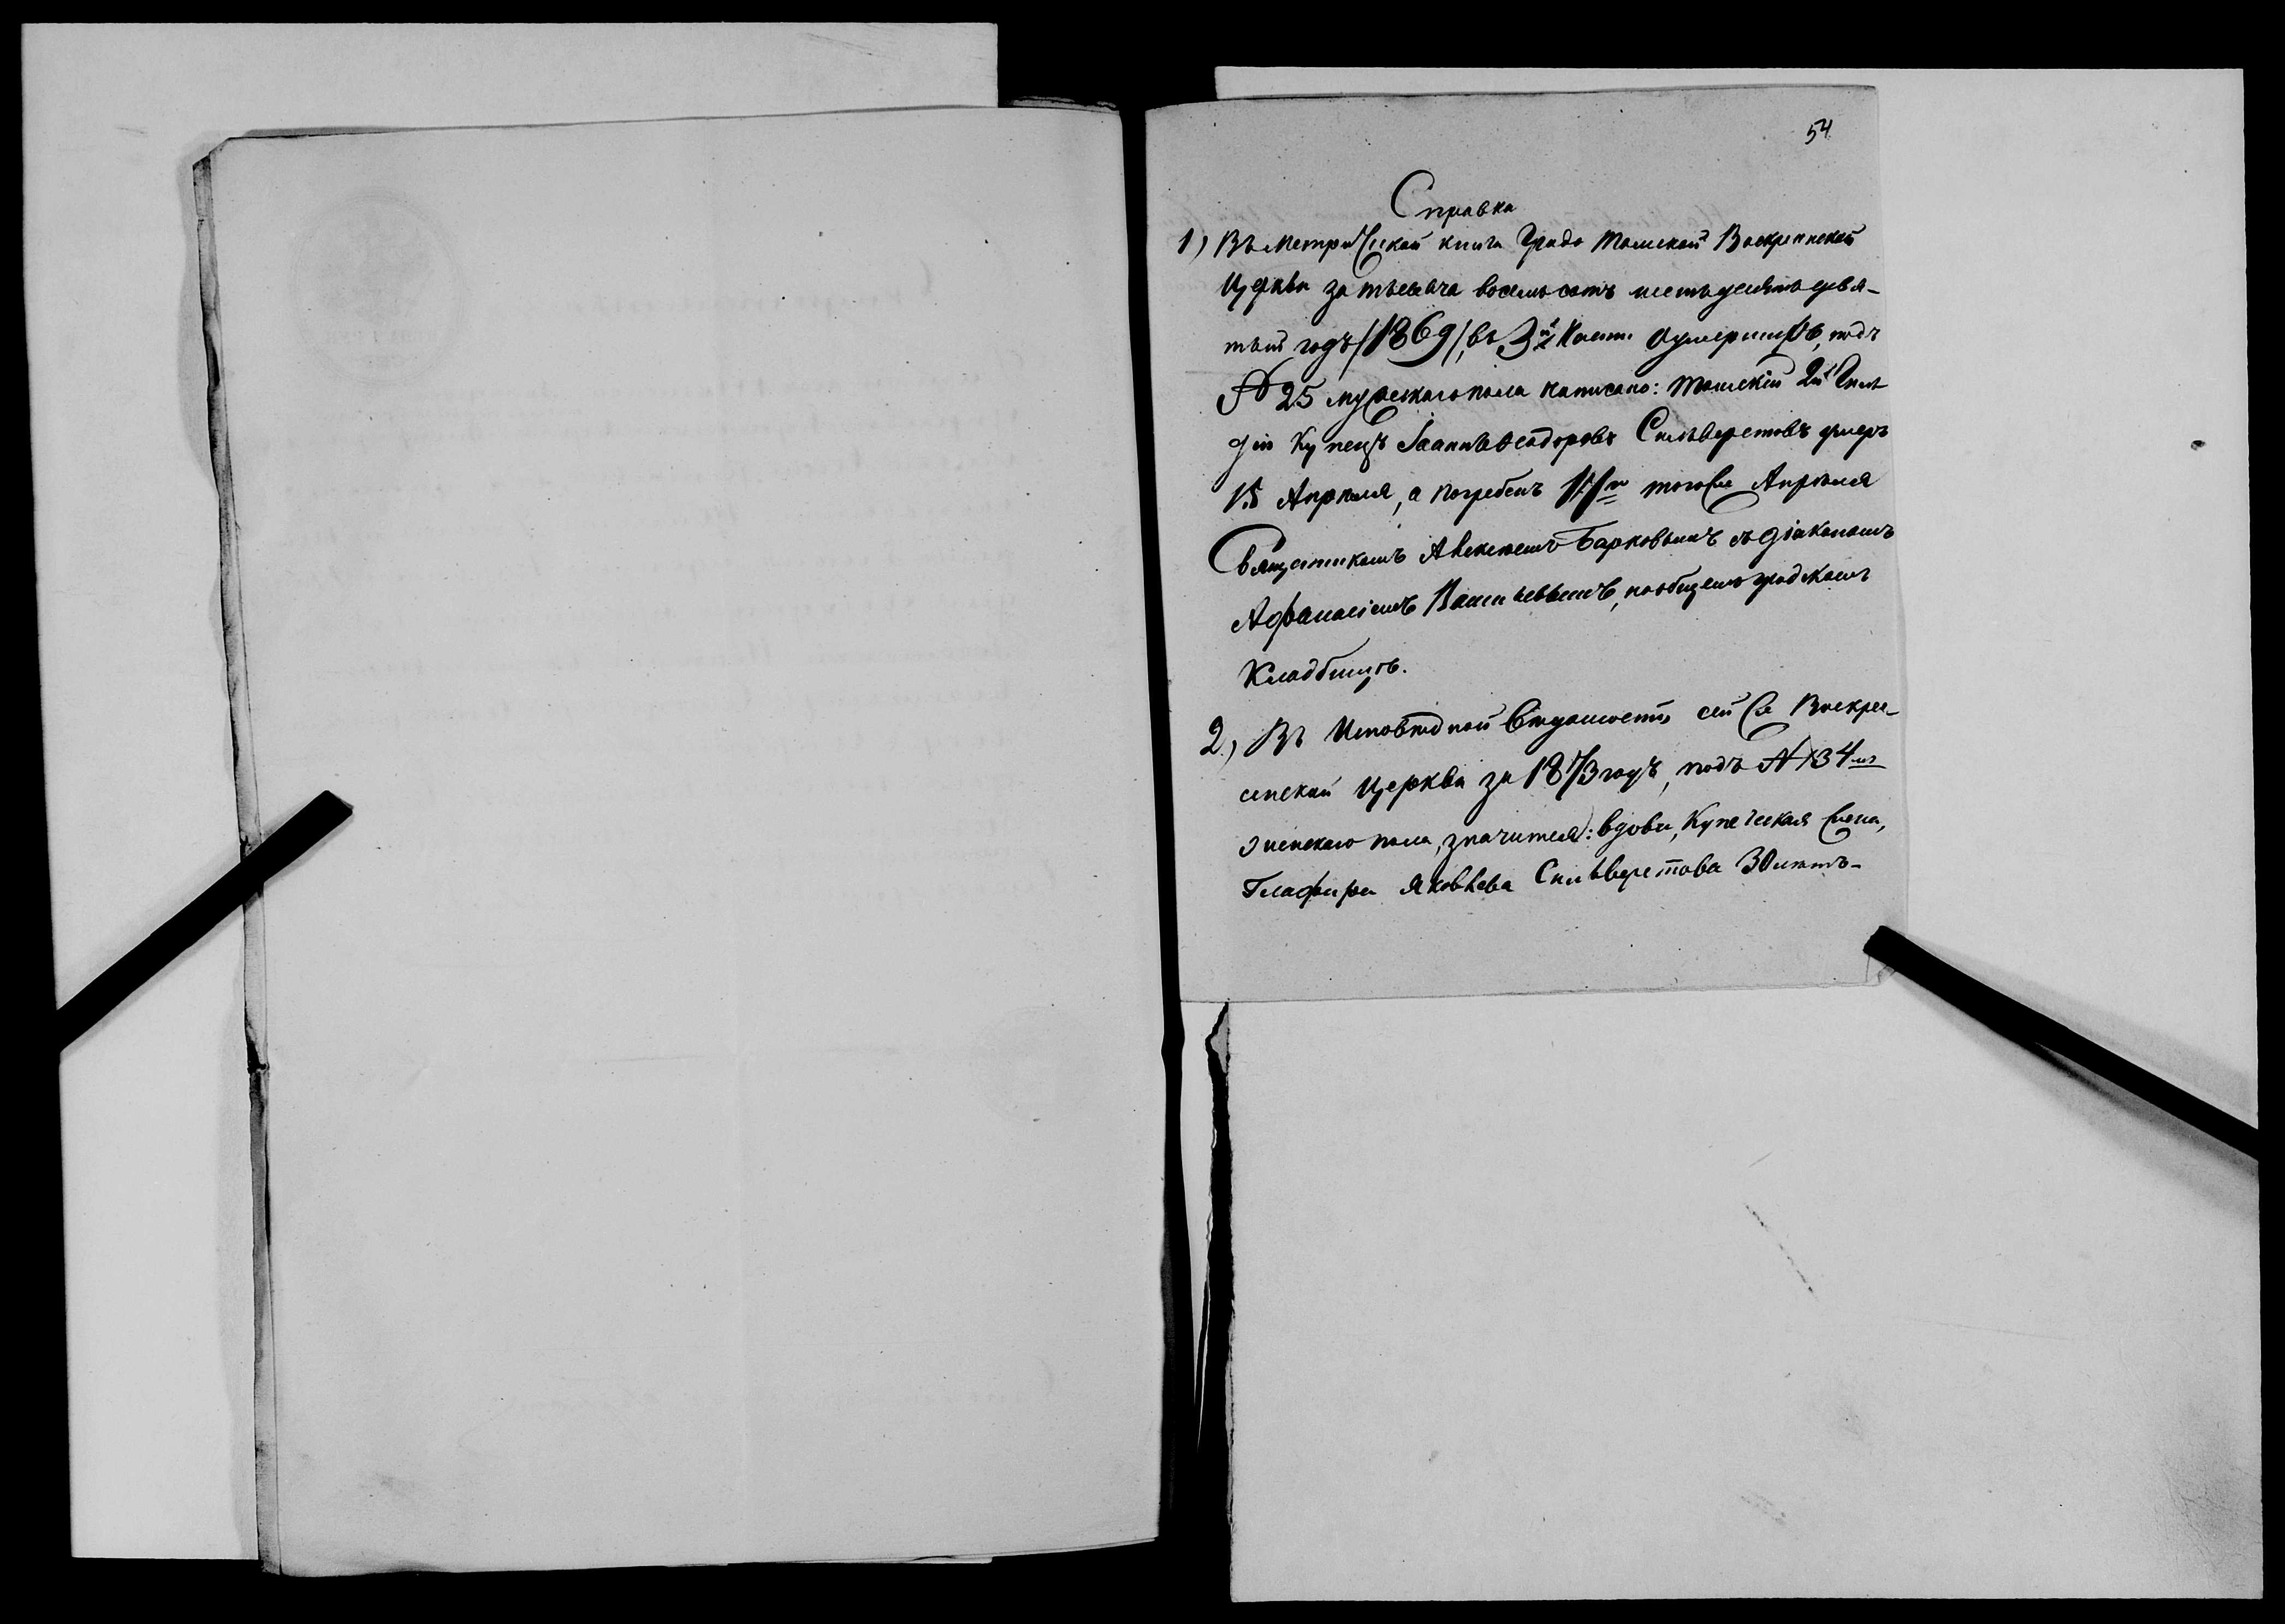 54
Справка
1) Въ Метрической книгѣ Градо Томской Воскресенской
Церкви за тысяча восемьсотъ шестьдесятъ девя-
тый годъ /1869/, въ 3й части о умершихъ, подъ
№ 25 мужескаго пола написано: Томскій 2й Гиль
діи Купецъ Іаннъ Ѳеодоровъ Сильверстовъ умеръ
Апрѣля, а погребенъ тогоже Апрѣля
Священникомъ Алексѣемъ Барковымъ съ діакономъ
Афанасіемъ Васильевымъ, на общемъ градскомъ
Кладбищѣ.
2) Въ Исповѣдной вѣдомости сей же Воскре-
сенской Церкви за 1873 годъ, подъ № 134мъ
женскаго пола, значится: вдова, Купеческая жена,
Глафира Яковлева Сильверстова 30 лѣтъ-